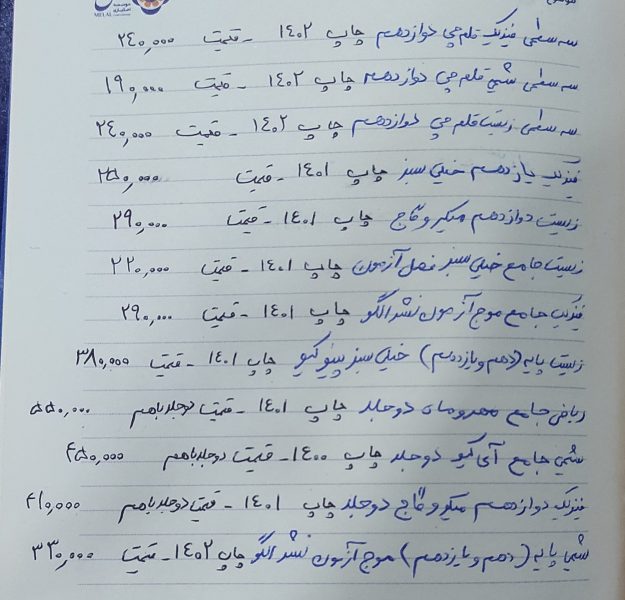 MELAL
سه سطحی فیزیک قلم چی دوازدهم چاپ ۱۴۰۲ - قیمت ۲۴۰,۰۰۰
سه سطحی شیمی قلم چی دوازدهم چاپ ۱۴۰۲ - قیمت ۱۹۰,۰۰۰
سه سطحی زیست قلم چی دوازدهم چاپ ۱۴۰۲ - قیمت ۲۴۰,۰۰۰
فیزیک یازدهم خیلی سبز چاپ ۱۴۰۱ - قیمت ۲۵۰,۰۰۰
زیست دوازدهم میکرو گاج چاپ ۱۴۰۱ - قیمت ۲۹۰,۰۰۰
زیست جامع خیلی سبز فصل آزمون چاپ ۱۴۰۱ - قیمت ۲۲۰,۰۰۰
فیزیک جامع موج آزمون نشر الگو چاپ ۱۴۰۱ - قیمت ۲۹۰,۰۰۰
زیست پایه (دهم و یازدهم) خیلی سبز پینوکیو چاپ ۱۴۰۱ - قیمت ۳۸۰,۰۰۰
ریاضی جامع مهروماه دو جلد چاپ ۱۴۰۱ - قیمت دو جلد باهم ۵۵۰,۰۰۰
شیمی جامع آی کیو دو جلد چاپ ۱۴۰۰ - قیمت دو جلد باهم ۴۵۰,۰۰۰
فیزیک دوازدهم میکرو گاج دو جلد چاپ ۱۴۰۱ - قیمت دو جلد باهم ۴۱۰,۰۰۰
شیمی پایه (دهم و یازدهم) موج آزمون نشر الگو چاپ ۱۴۰۲ - قیمت ۳۳۰,۰۰۰